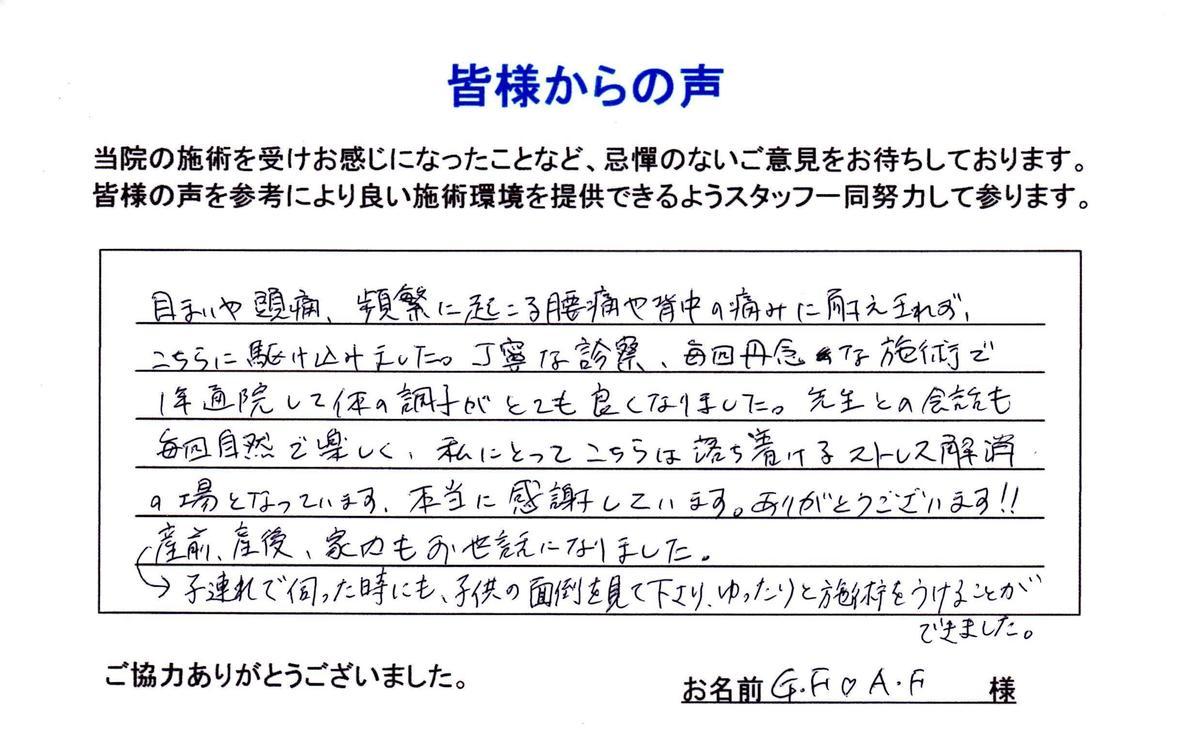 皆様からの声
当院の施術を受けお感じになったことなど、忌憚のないご意見をお待ちしております。
皆様の声を参考により良い施術環境を提供できるようスタッフ一同努力して参ります。
目まいや頭痛、頻繁に起こる腰痛や背中の痛みに耐え切れず、
こちらに駆け込みました。丁寧な診察、毎回丹念な施術で
1年通院して体の調子がとても良くなりました。先生との会話も
毎回自然で楽しく、私にとってこちらは落ち着けるストレス解消
の場となっています。本当に感謝しています。ありがとうございます!!
産前、産後、家内もお世話になりました。
→子連れで伺った時にも、子供の面倒を見て下さり、ゆったりと施術をうけることが
できました。
ご協力ありがとうございました。
お名前 G.F♡A.F 様